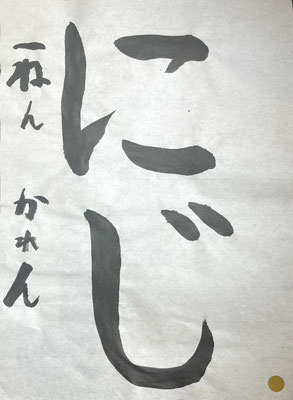 にじ
一ねん かれん